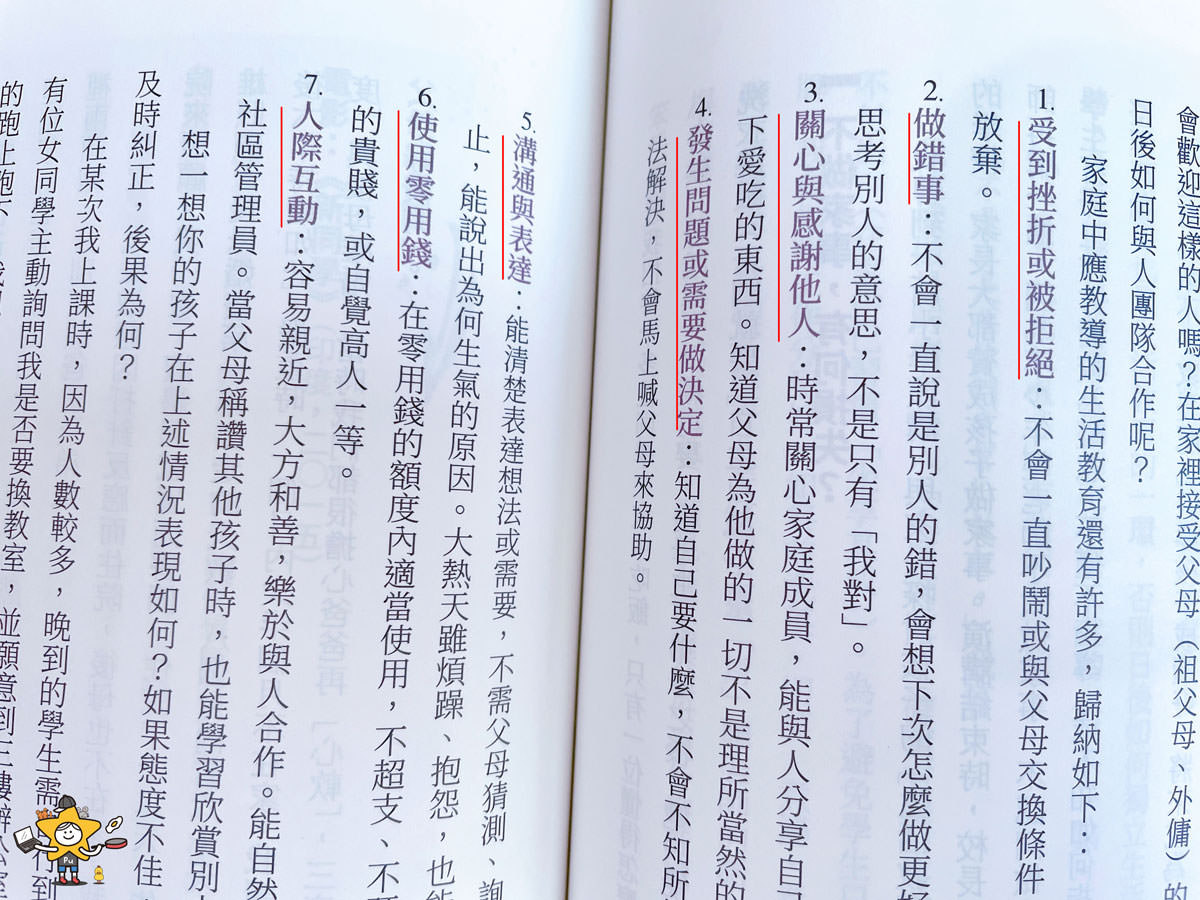 會歡迎這樣的人嗎？在家裡接受父母（祖父母、外傭）的
日後如何與人團隊合作呢？
家庭中應教導的生活教育還有許多，歸納如下：
1.受到挫折或被拒絕：不會一直吵鬧或與父母交換條件
放棄。
2.做錯事：不會一直說是別人的錯，會想下次怎麼做更好
思考別人的意思，不是只有「我對」。
3.關心與感謝他人：時常關心家庭成員，能與人分享自己
下愛吃的東西。知道父母為他做的一切不是理所當然的
4.發生問題或需要做決定：知道自己要什麼，不會不知所
法解決，不會馬上喊父母來協助。
5.溝通與表達：能清楚表達想法或需要，不需父母猜測、詢
止，能說出為何生氣的原因。大熱天雖煩躁、抱怨，也能
6.使用零用錢：在零用錢的額度內適當使用，不超支、不
的貴賤，或自覺高人一等。
7.人際互動：容易親近，大方和善，樂於與人合作。能自然
社區管理員。當父母稱讚其他孩子時，也能學習欣賞別
想一想你的孩子在上述情況表現如何？如果態度不佳
及時糾正，後果為何？
在某次我上課時，因為人數較多，晚到的學生需
有位女同學主動詢問我是否要換教室，並願意到二樓辦公室
的跑上跑下
Pu